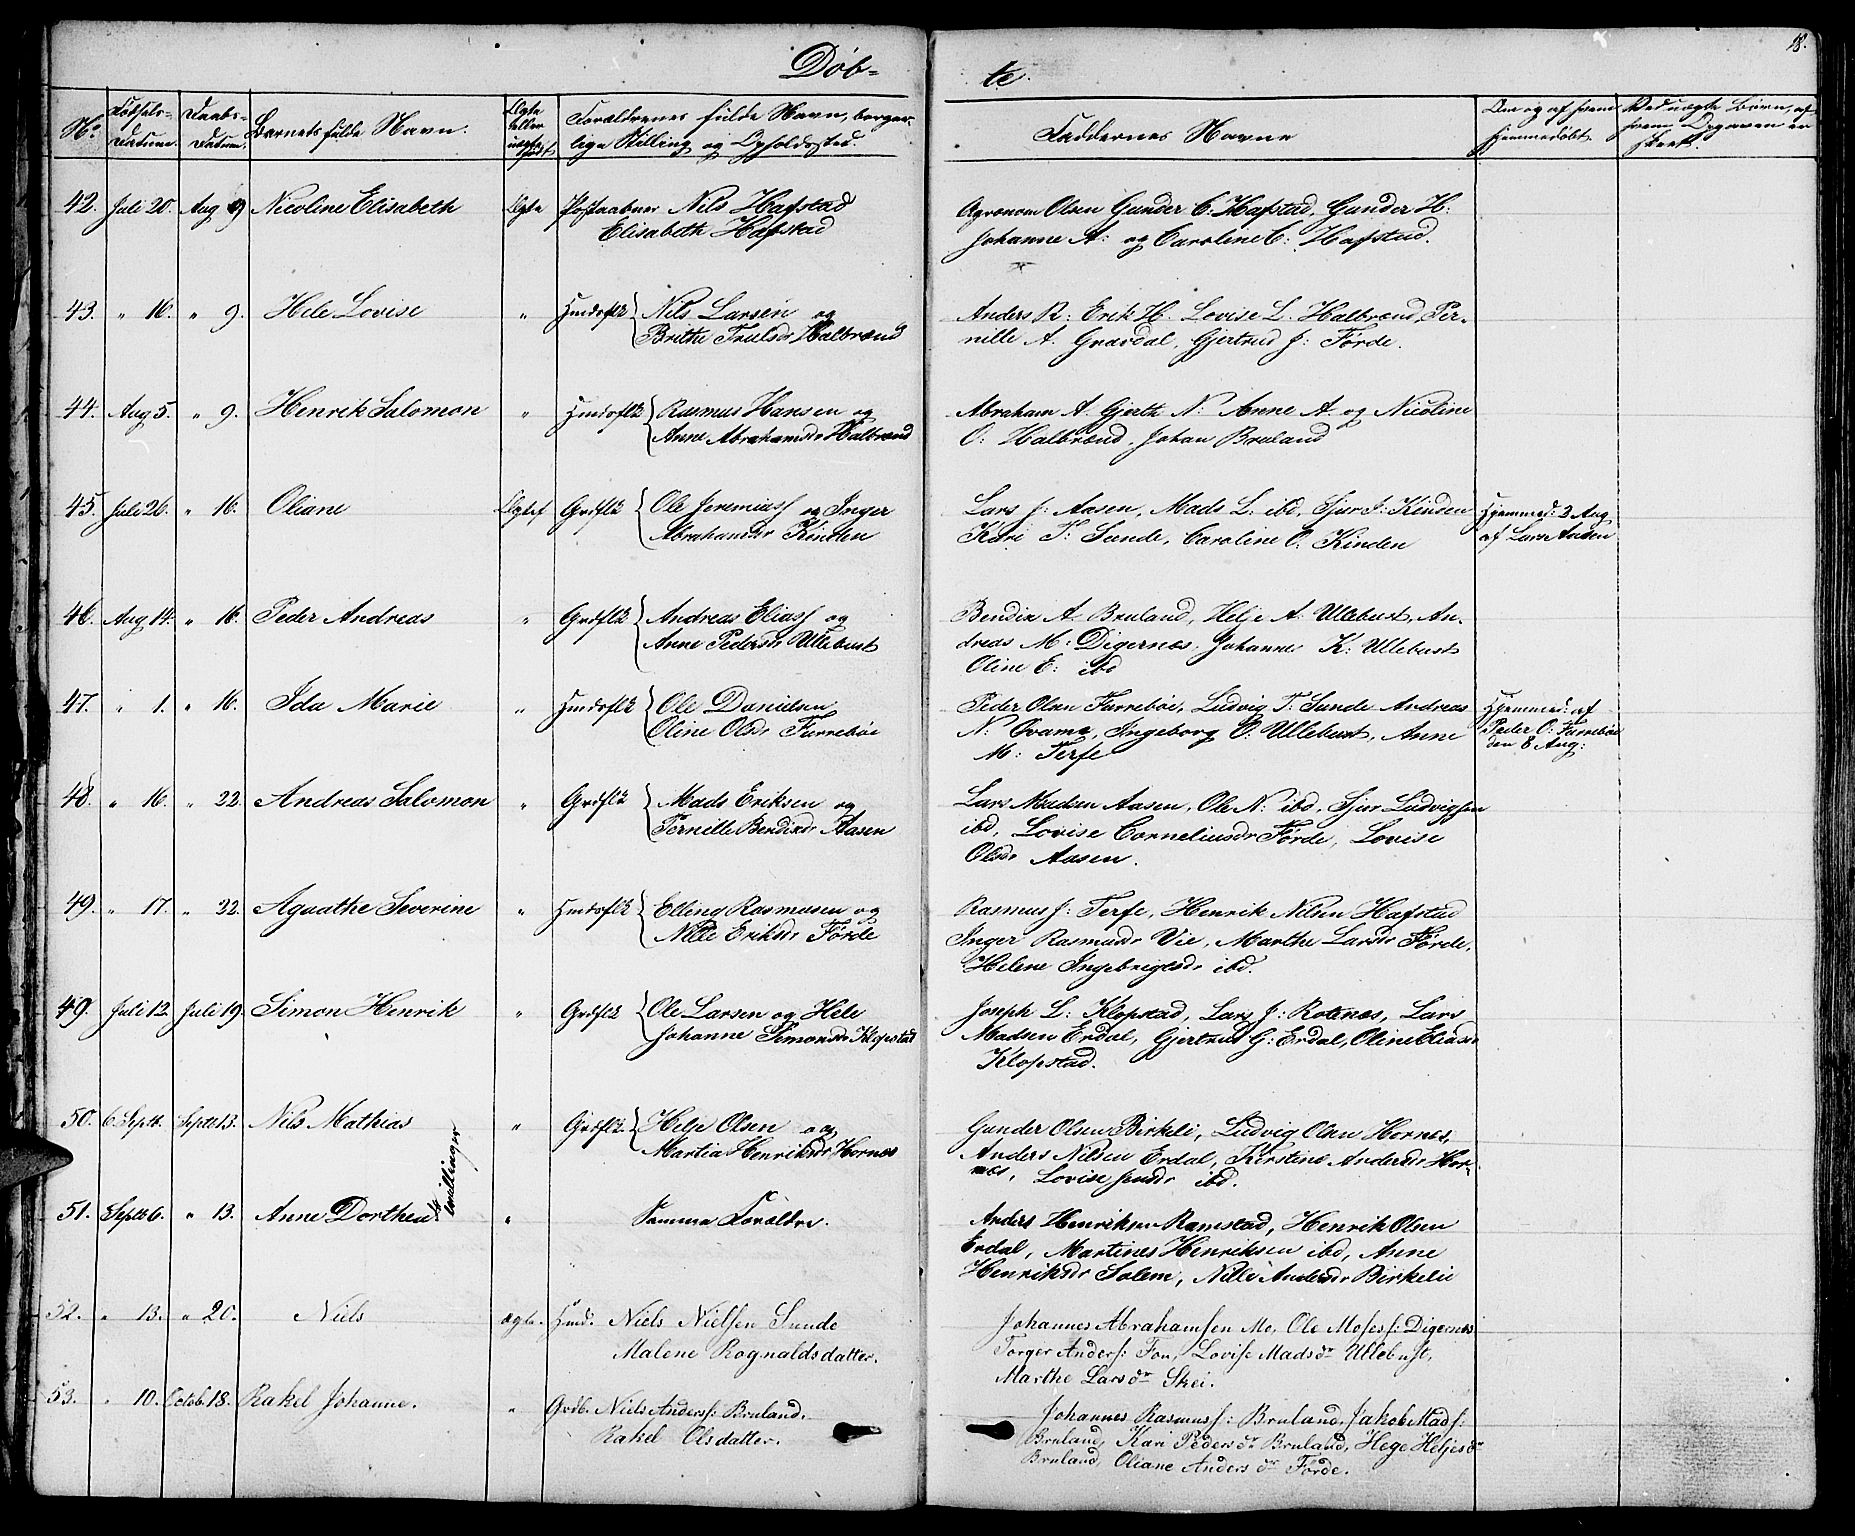 Døb-
te.
18.
No Fødsels-Datum. Daabs-Datum. Barnets fulde Navn. Ægte eller uægte født Forældrenes fulde Navn, borger-
lige Stilling og Opholdssted. Faddernes Navne Om og af hvem Hjemmedøbt. Ved uægte Børn, af hvem Opgaven er skeet.
42. Juli 20. Aug 9 Nicoline Elisabeth Ægte Postaabner Nils Hafstad
Elisabeth Hafstad
Agronom Olsen Gunder C. Hafstad, Gunder H:
Johanne A: og Caroline C: Hafstad.
43. " 16. " 9. Hele Lovise " Hmdsflk Nils Larsen og
Brithe Trulsdr Halbrænd
Anders R: Erik H. Lovise L. Halbrænd, Per-
nille A. Gravdal, Gjertrud J: Førde.
44. Aug 5. " 9. Henrik Salomon " Hmdsflk Rasmus Hansen og
Anne Abrahamsdr Halbrænd
Abraham A. Gjerth N: Anne A og Nicoline
O: Halbrænd, Johan Bruland
45. Juli 26. " 16. Oliane Ægtef Grdflk Ole Jeremiass og Inger
Abrahamsdr Kinden
Lars J: Aasen, Mads L: ibd, Sjur J: Kinden
Kari T: Sunde, Caroline O: Kinden
Hjemmed: 2 Aug
af Lars Aasen
46. Aug 14. " 16. Peder Andreas " Grdflk Andreas Eliass og
Anne Pedersdr Ullebust
Bendix A Bruland, Helje A: Ullebust, An-
dreas M: Digernes, Johannes K: Ullebust
Oline E: ibd
47. " 1. " 16. Ida Marie " Hmdsflk Ole Danielsen
Oline Olsdr Farrebøe
Peder Olsen Farrebøe, Ludvig T: Sunde Andreas
N: Qvame, Ingeborg O: Ullebust, Anne
M: Terfe
Hjemmed: af
Peder O: Farrebøe
den 8 Aug:
48. " 16. " 22. Andreas Salomon " Grdflk Mads Eriksen og
Pernille Bendixdr Aasen
Lars Madsen Aasen, Ole N: ibd, Sjur Ludvigsen
ibd, Lovise Corneliusdr Førde, Lovise
Olsdr Aasen.
49. " 17. " 22. Aguathe Severine " Hmdsflk Elling Rasmusen og
Nille Eriksdr Førde
Rasmus J: Terfe, Henrik Nilsen Hafstad
Inger Rasmusdr Vie, Marthe Larsdr Førde,
Helene Ingebrigtsdr ibd.
49. Juli 12. Juli 19. Simon Henrik " Grdflk Ole Larsen og Hele
Johanne Simonsdr Klopstad
Joseph L: Klopstad, Lars J: Rotenes, Lars
Madsen Erdal, Gjertrud G: Erdal, Oline Eliasdr
Klopstad.
50. 6. Septb. Septb 13. Nils Mathias " Grdflk. Helje Olsen og
Martia Henriksdr Hornes
Gunder Olsen Birkeli, Ludvig Olsen Hornes,
Anders Nilsen Erdal, Kirstine Andersdr Hor-
nes, Lovise Jensdr ibd.
twillinger
51. Septb 6. " 13. Anne Dorthea " Samme Forældre.
Anders Henriksen Ramstad, Henrik Olsen
Erdal, Martines Henriksen ibd, Anne
Henriksdr Solem, Nille Andersdr Birkelie
52. " 13. " 20. Niels ægte. Hmd. Niels Nielsen Sunde
Malene Rognaldsdatter.
Johannes Abrahamsen Mo, Ole Moses: Digernes
Torger Anders: Fon, Lovise Madsdr Ullebust,
Marthe Larsdr Skei.
53. " 10. Octob. 18. Rakel Johanne. " Grdb. Niels Anders: Bruland.
Rakel Olsdatter.
Johannes Rasmus: Bruland, Jakob Mads:
Bruland, Kari Pedersdr Bruland, Hege Heljesdr
Bruland, Oliane Andersdr Førde.